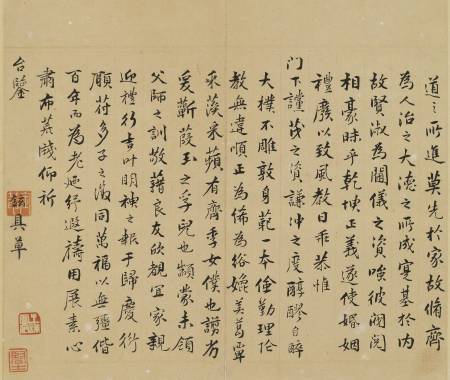 道之所進莫先於家故脩齊
為人治之大德之所成實基於內
故賢淑為閫儀之資唉彼閥閱
相豪昧乎乾坤正義遂使婚姻
禮廢以致風教日乖恭惟
門下謹茂之資謙沖之度醇醪自醉
大樸不雕敦身範一本儉勤理倫
教無違順正為佈為裕媲美葛覃
采藻采蘋有齊季女僕也謭劣
爰蘄葭玉之孚兒也顓蒙未領
父師之訓敬藉良友欣覯宜家親
迎禮行吉叶明神之報于歸慶衍
願符多子之徵同萬福以無疆偕
百年而為老紓遐禱用展素心
肅布蕪牋仰祈
台鑒
具草